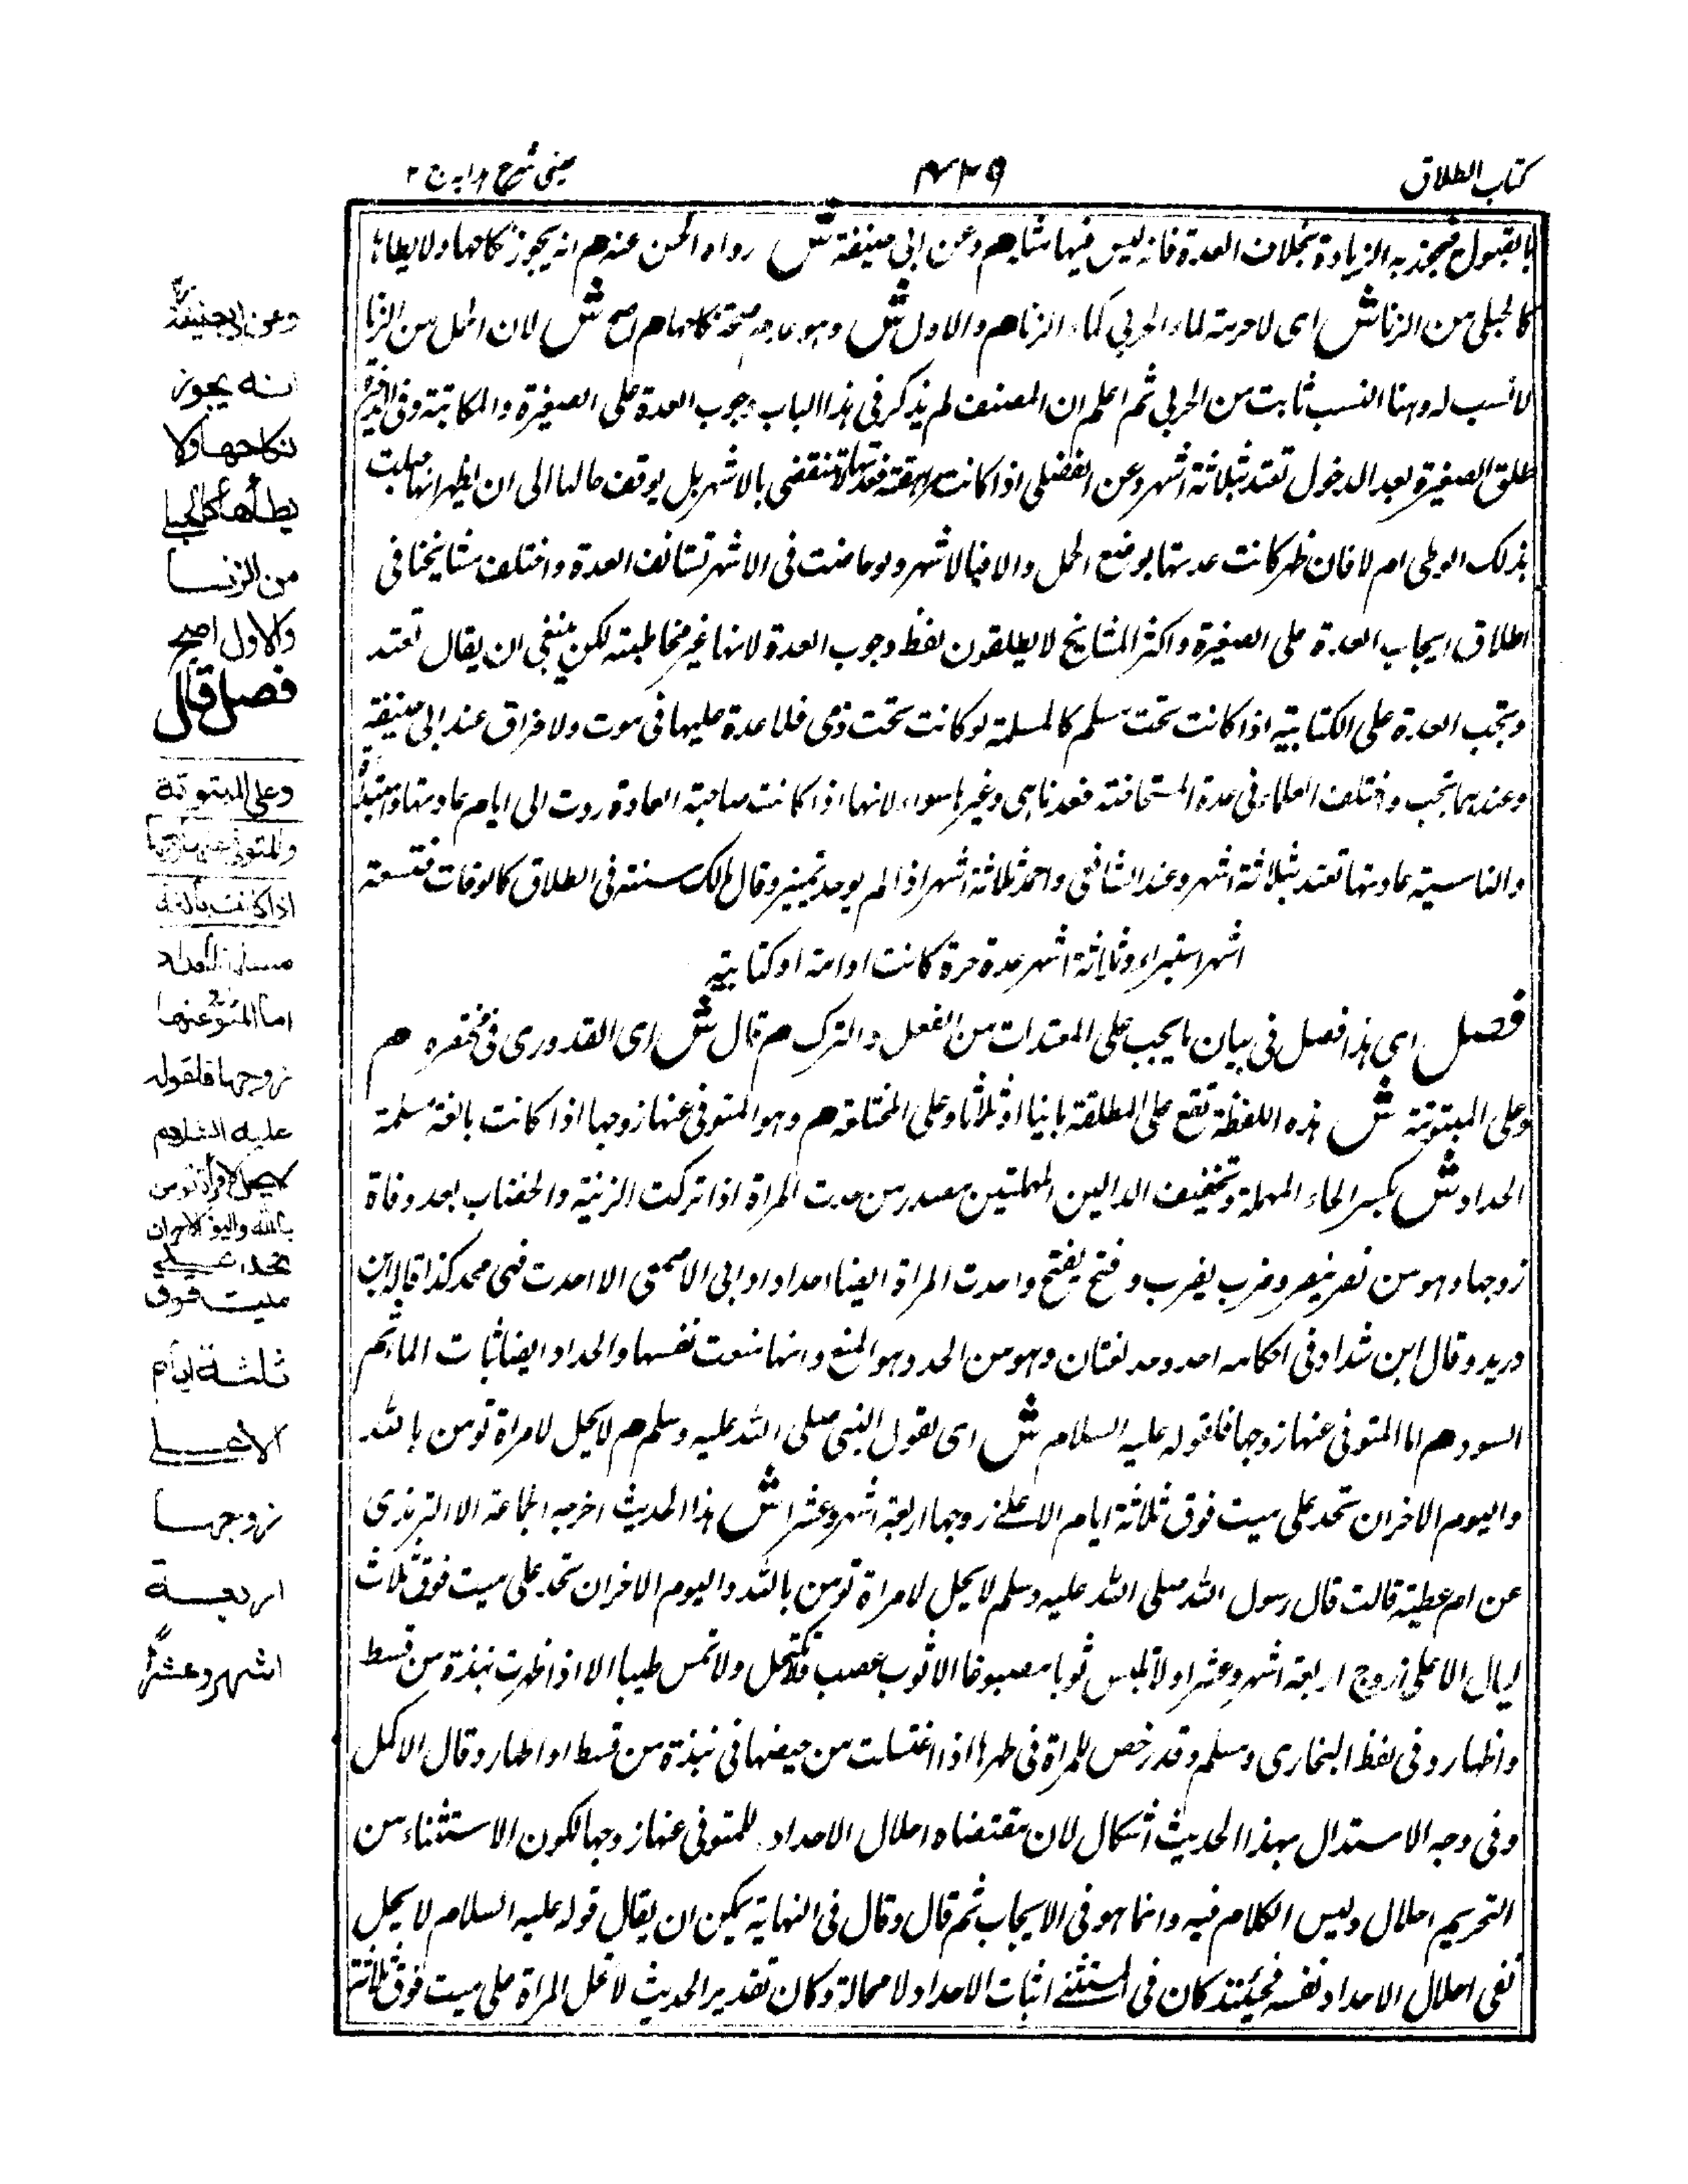 كتاب الطلاق
۴۳۹
عينى شرح هدايه ج ۲
بالقبول فيجذبه الزيادة بخلاف العدة فانه ليس فيها شابهم وعن ابى حنيفة ش رواه الحسن عنه م انه يجوز نكاحها ولا يطاها
كالحبلى من الزنا ش اى لا حرمة لماء الحربي كماء الزنا م والاول ش وهو عدم صحة نكاحها م اصح ش لان الحمل من الزنا
لا نسب له وهنا النسب ثابت من الحربي ثم اعلم ان المصنف لم يذكر فى هذا الباب وجوب العدة على الصغيرة والمكاتبة وفى الذخيرة
طلق الصغيرة بعد الدخول تعتد بثلاثة اشهر وعن الفضلى اذا كانت مراهقة فعدتها لا تنقضى بالاشهر بل يوقف حالها الى ان يظهر انها حبلت
بذلك الوطى ام لا فان ظهر كانت عدتها بوضع الحمل والا فبالاشهر ولو حاضت فى الاشهر تستانف العدة واختلف مشايخنا فى
اطلاق ايجاب العدة على الصغيرة واكثر المشايخ لا يطلقون لفظ وجوب العدة لانها غير مخاطبة لكن ينبغى ان يقال تعتد
وتجب العدة على الكتابية اذا كانت تحت مسلم كالمسلمة لو كانت تحت ذمى فلا عدة عليها فى موت ولا فراق عند ابى حنيفة
وعندهما تجب واختلف العلماء فى عدة المستحاضة فعندنا هى وغيرها سواء لانها اذا كانت صاحبة العادة ردت الى ايام عادتها
والناسية عادتها تعتد بثلاثة اشهر وعند الشافعى واحمد ثلاثة اشهر اذا لم يوجد تمييز وقال مالك سنة فى الطلاق كالوفات فتسعة
اشهر استبراء وثلاثة اشهر عدة حرة كانت او امة او كتابية
فصل اى هذا فصل فى بيان ما يجب على المعتدات من الفعل والترك م قال ش اى القدورى فى مختصره م
وعلى المبتوتة ش هذه اللفظة تقع على المطلقة باينا او ثلاثا وعلى المختلعة م وهو المتوفى عنها زوجها اذا كانت بالغة مسلمة
الحداد ش بكسر الحاء المهملة وتخفيف الدالين المهملتين مصدر من حدت المراة اذا تركت الزينة والخضاب بعد وفاة
زوجها وهو من نصر ينصر وضرب يضرب وفتح يفتح واحدت المراة ايضا احدادا وابى الاصمعى الا احدت فهى محد كذا قاله ابن
دريد وقال ابن شداد فى احكامه احد وحد لغتان وهو من الحد وهو المنع وانها منعت نفسها والحداد ايضا ثياب الماتم
السود م اما المتوفى عنها زوجها فلقوله عليه السلام ش اى لقول النبى صلى الله عليه وسلم م لا يحل لامراة تومن بالله
واليوم الاخر ان تحد على ميت فوق ثلاثة ايام الا على زوجها اربعة اشهر وعشرا ش هذا الحديث اخرجه الجماعة الا الترمذى
عن ام عطية قالت قال رسول الله صلى الله عليه وسلم لا يحل لامراة تومن بالله واليوم الاخر ان تحد على ميت فوق ثلاث
ليال الا على زوج اربعة اشهر وعشرا ولا تلبس ثوبا مصبوغا الا ثوب عصب ولا تكتحل ولا تمس طيبا الا اذا طهرت نبذة من قسط
واظهار وفى لفظ البخارى ومسلم وقد رخص للمراة فى طهرها اذا اغتسلت من حيضها فى نبذة من قسط او اظهار وقال الاكمل
وفى وجه الاستدلال بهذا الحديث اشكال لان مقتضاه احلال الاحداد للمتوفى عنها زوجها لكون الاستثناء من
التحريم احلال وليس الكلام فيه وانما هو فى الايجاب ثم قال وقال فى النهاية يمكن ان يقال قوله عليه السلام لا يحل
نفى احلال الاحداد نفسه فحينئذ كان فى المستثنى اثبات الاحداد لا محالة وكان تقدير الحديث لا تحل المراة على ميت فوق ثلاثة
وعن ابى حنيفة
انه يجوز
نكاحها ولا
يطأها كالحبلى
من الزنا
والاول اصح
فصل قال
وعلى المبتوتة
والمتوفى عنها زوجها
اذا كانت بالغة
مسلمة الحداد
اما المتوفى عنها
زوجها فلقوله
عليه السلام
لا يحل لامرأة تومن
بالله واليوم الاخر ان
تحد على
ميت فوق
ثلثة ايام
الا على
زوجها
اربعة
اشهر وعشرا